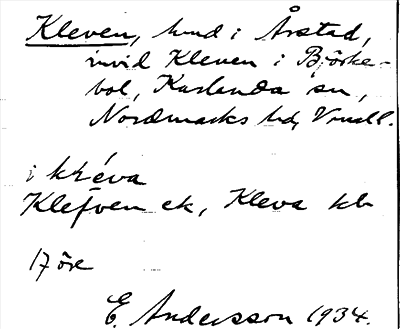 Kleven, hmd i Årstad,
invid Kleven i Björke-
bol, Karlanda sn,
Nordmarks hd, Vrmll.
i kléva
Klefven ek, Kleva kb
17 öre
E. Andersson 1934.